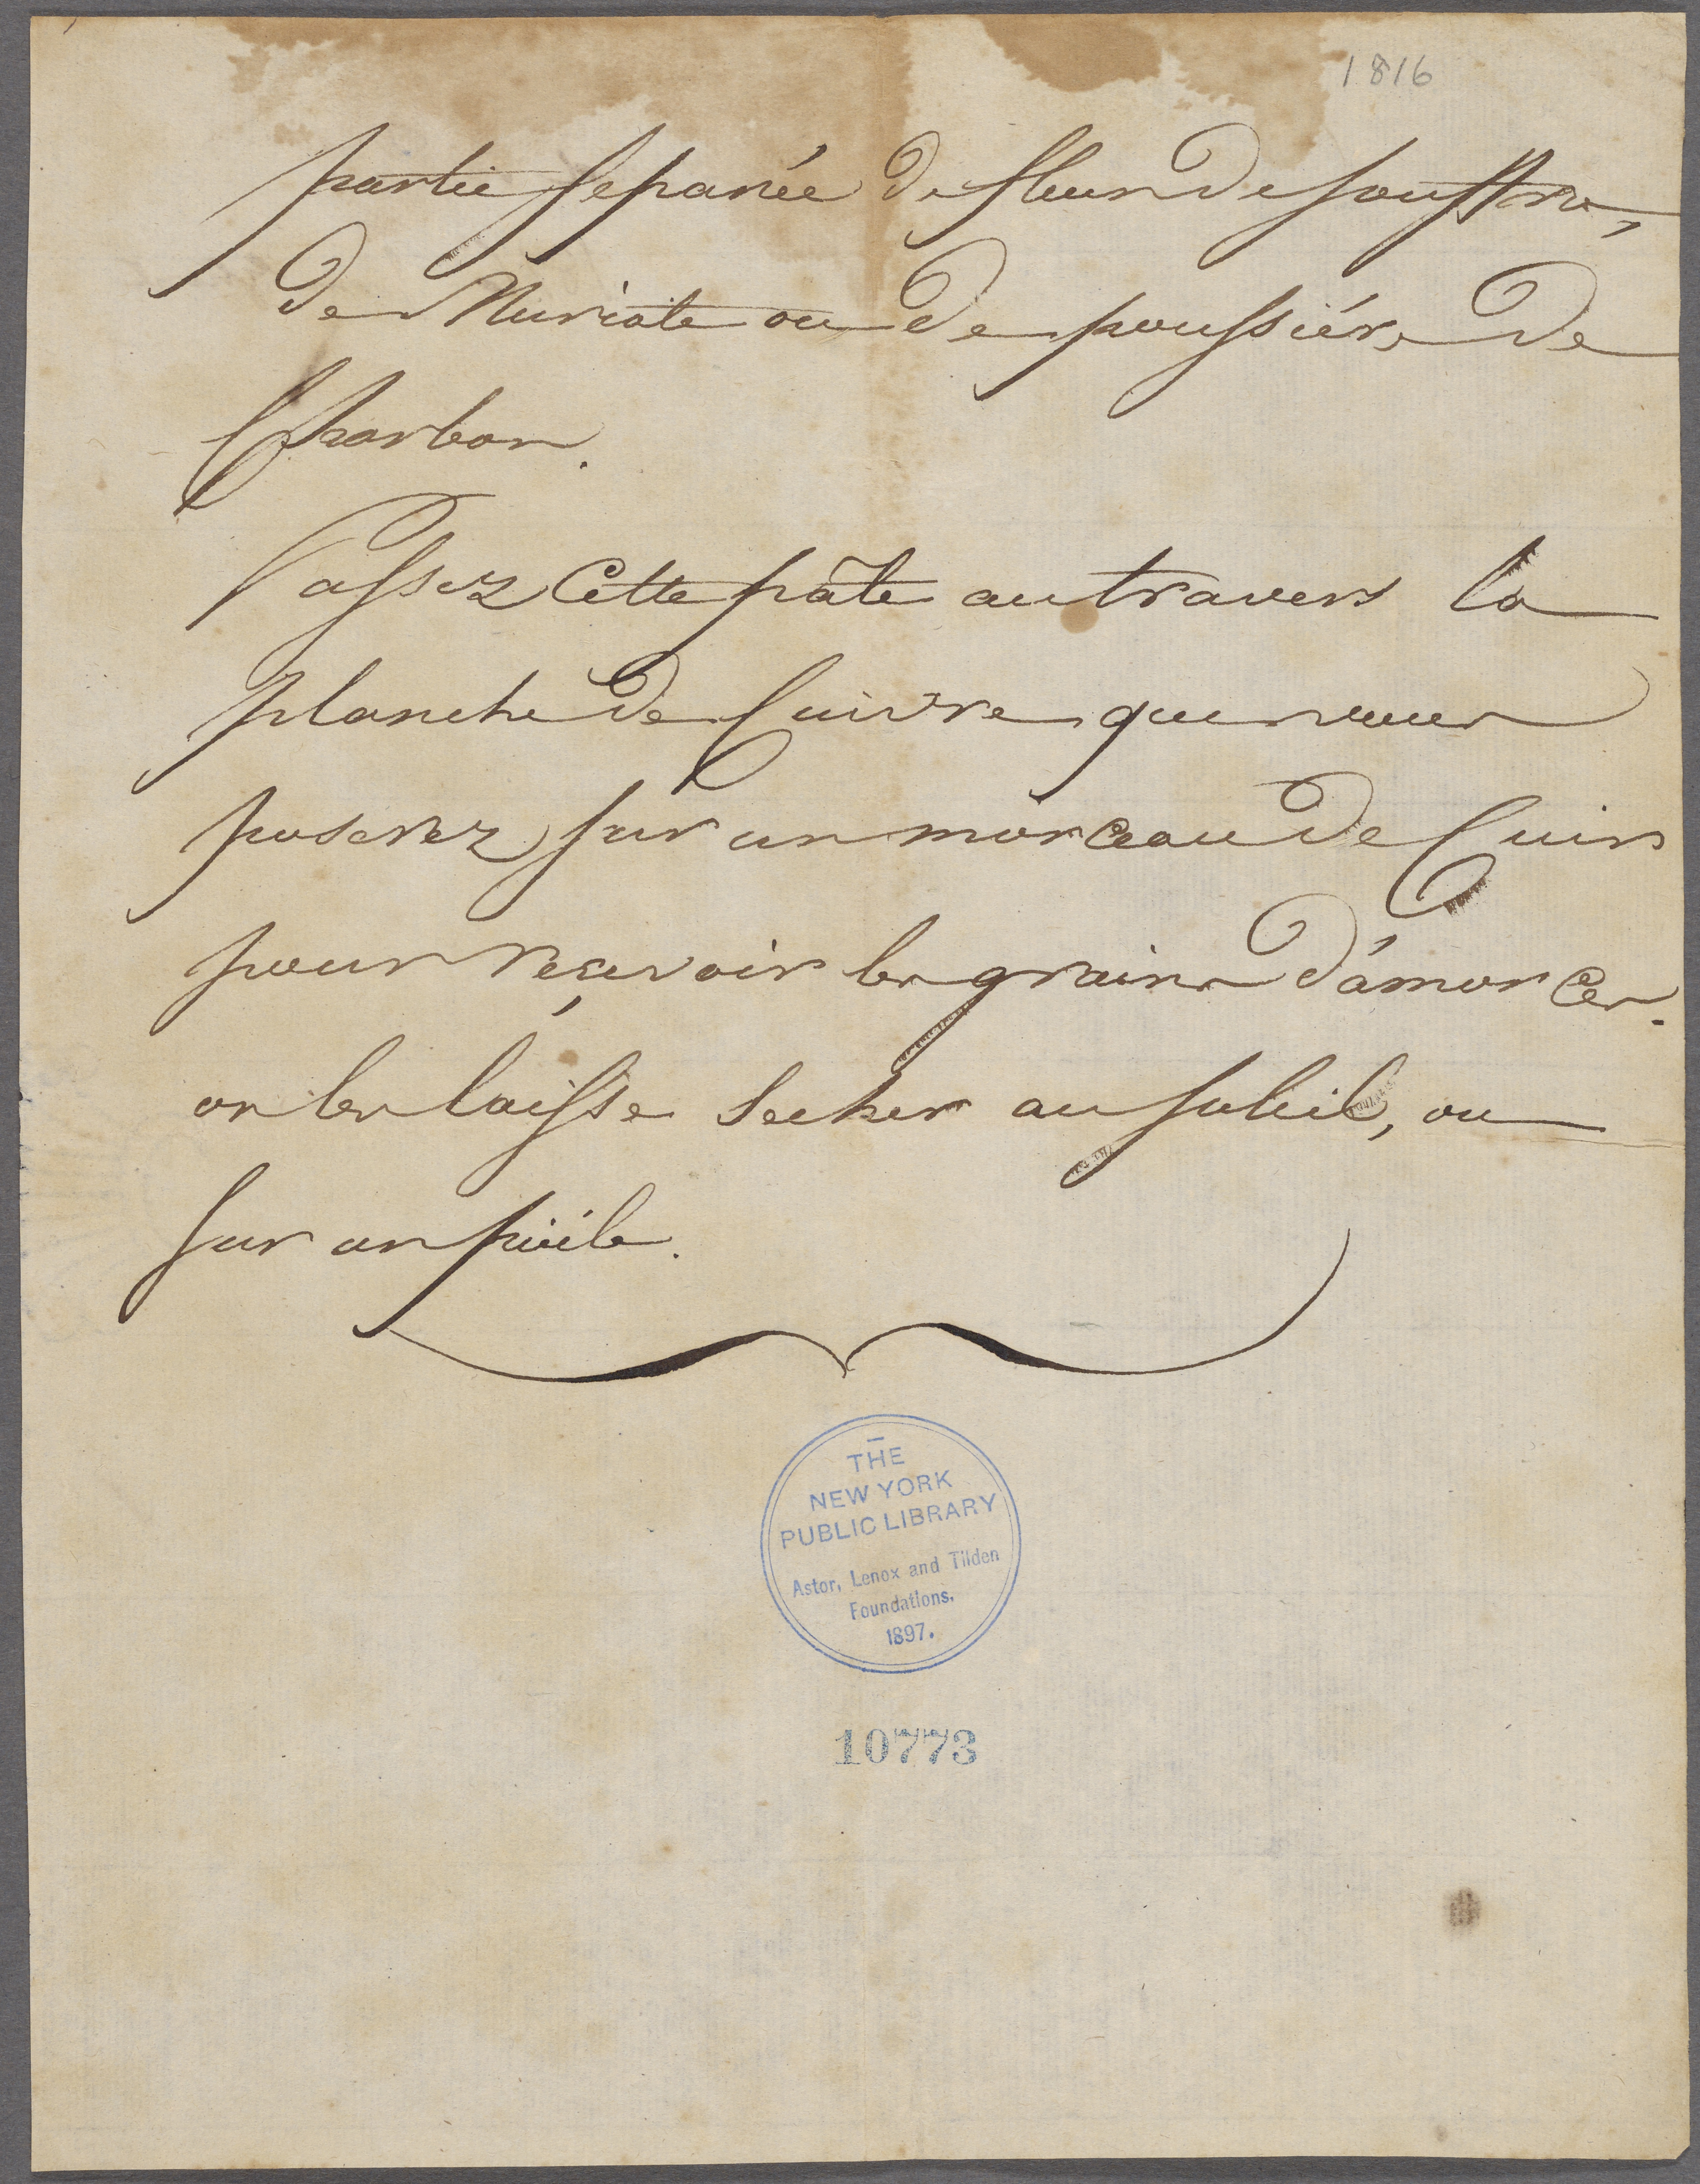 1816
partie separée de fleur de souffre,
de Muriate ou de poussiére de
Charbon.
Passez Cette pâte au travers la
planche de Cuivre que vous
poserez sur un morceau de Cuir
pour reçevoir les grains d'amorces.
on les laisse secher au soleil, ou
sur un poële.
THE
NEW YORK
PUBLIC LIBRARY
Astor, Lenox and Tilden
Foundations.
1897.
10773